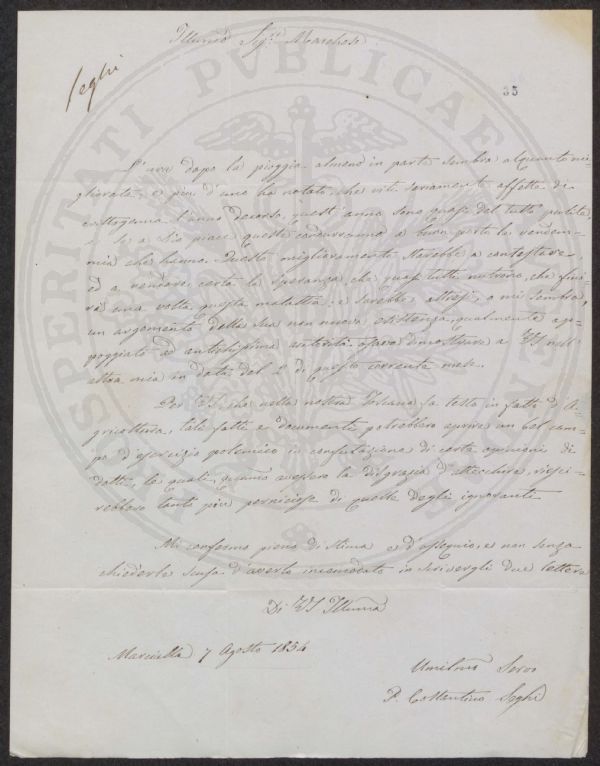 Illumo Sigr. Marchese
Seghi
35
L'uva dopo la pioggia almeno in parte sembra alquanto mi-
gliorata, e più d'uno ha notato, che viti seriamente affette di
crittogama l'anno decorso, quest'anno sono quasi del tutto pulite,
e se a Dio piace queste condurranno a buon porto la vendem-
mia che hanno. Questo miglioramento starebbe a contestare,
ed a rendere certa la speranza, che quasi tutti nutrono, che fini-
rà una volta questa malattia: e sarebbe altresì, a me sembra,
un argomento della sua non nuova esistenza, qualmente ap-
poggiato ad antichissima autorità osavo dimostrare a VS nell'
altra mia in data del 2 di questo corrente mese.
Per VS che nella nostra Toscana fa testo in fatti d'A-
gricoltura, tali fatti e documenti potrebbero aprire un bel cam-
po d'esercizio polemico in confutazione di certe opinioni di
dotti, le quali, quando avessero la disgrazia d'attecchire, riesci-
rebbero tanto più perniciose di quelle degli ignoranti.
Mi confermo pieno di stima e d'ossequio, e non senza
chiederle scusa d'averla incomodata in scrivergli due lettere
Di VS Illuma
Marcialla 7 Agosto 1854
Umilmo Servo
P. Costantino Seghi
PROSPERITATI PVBLICAE